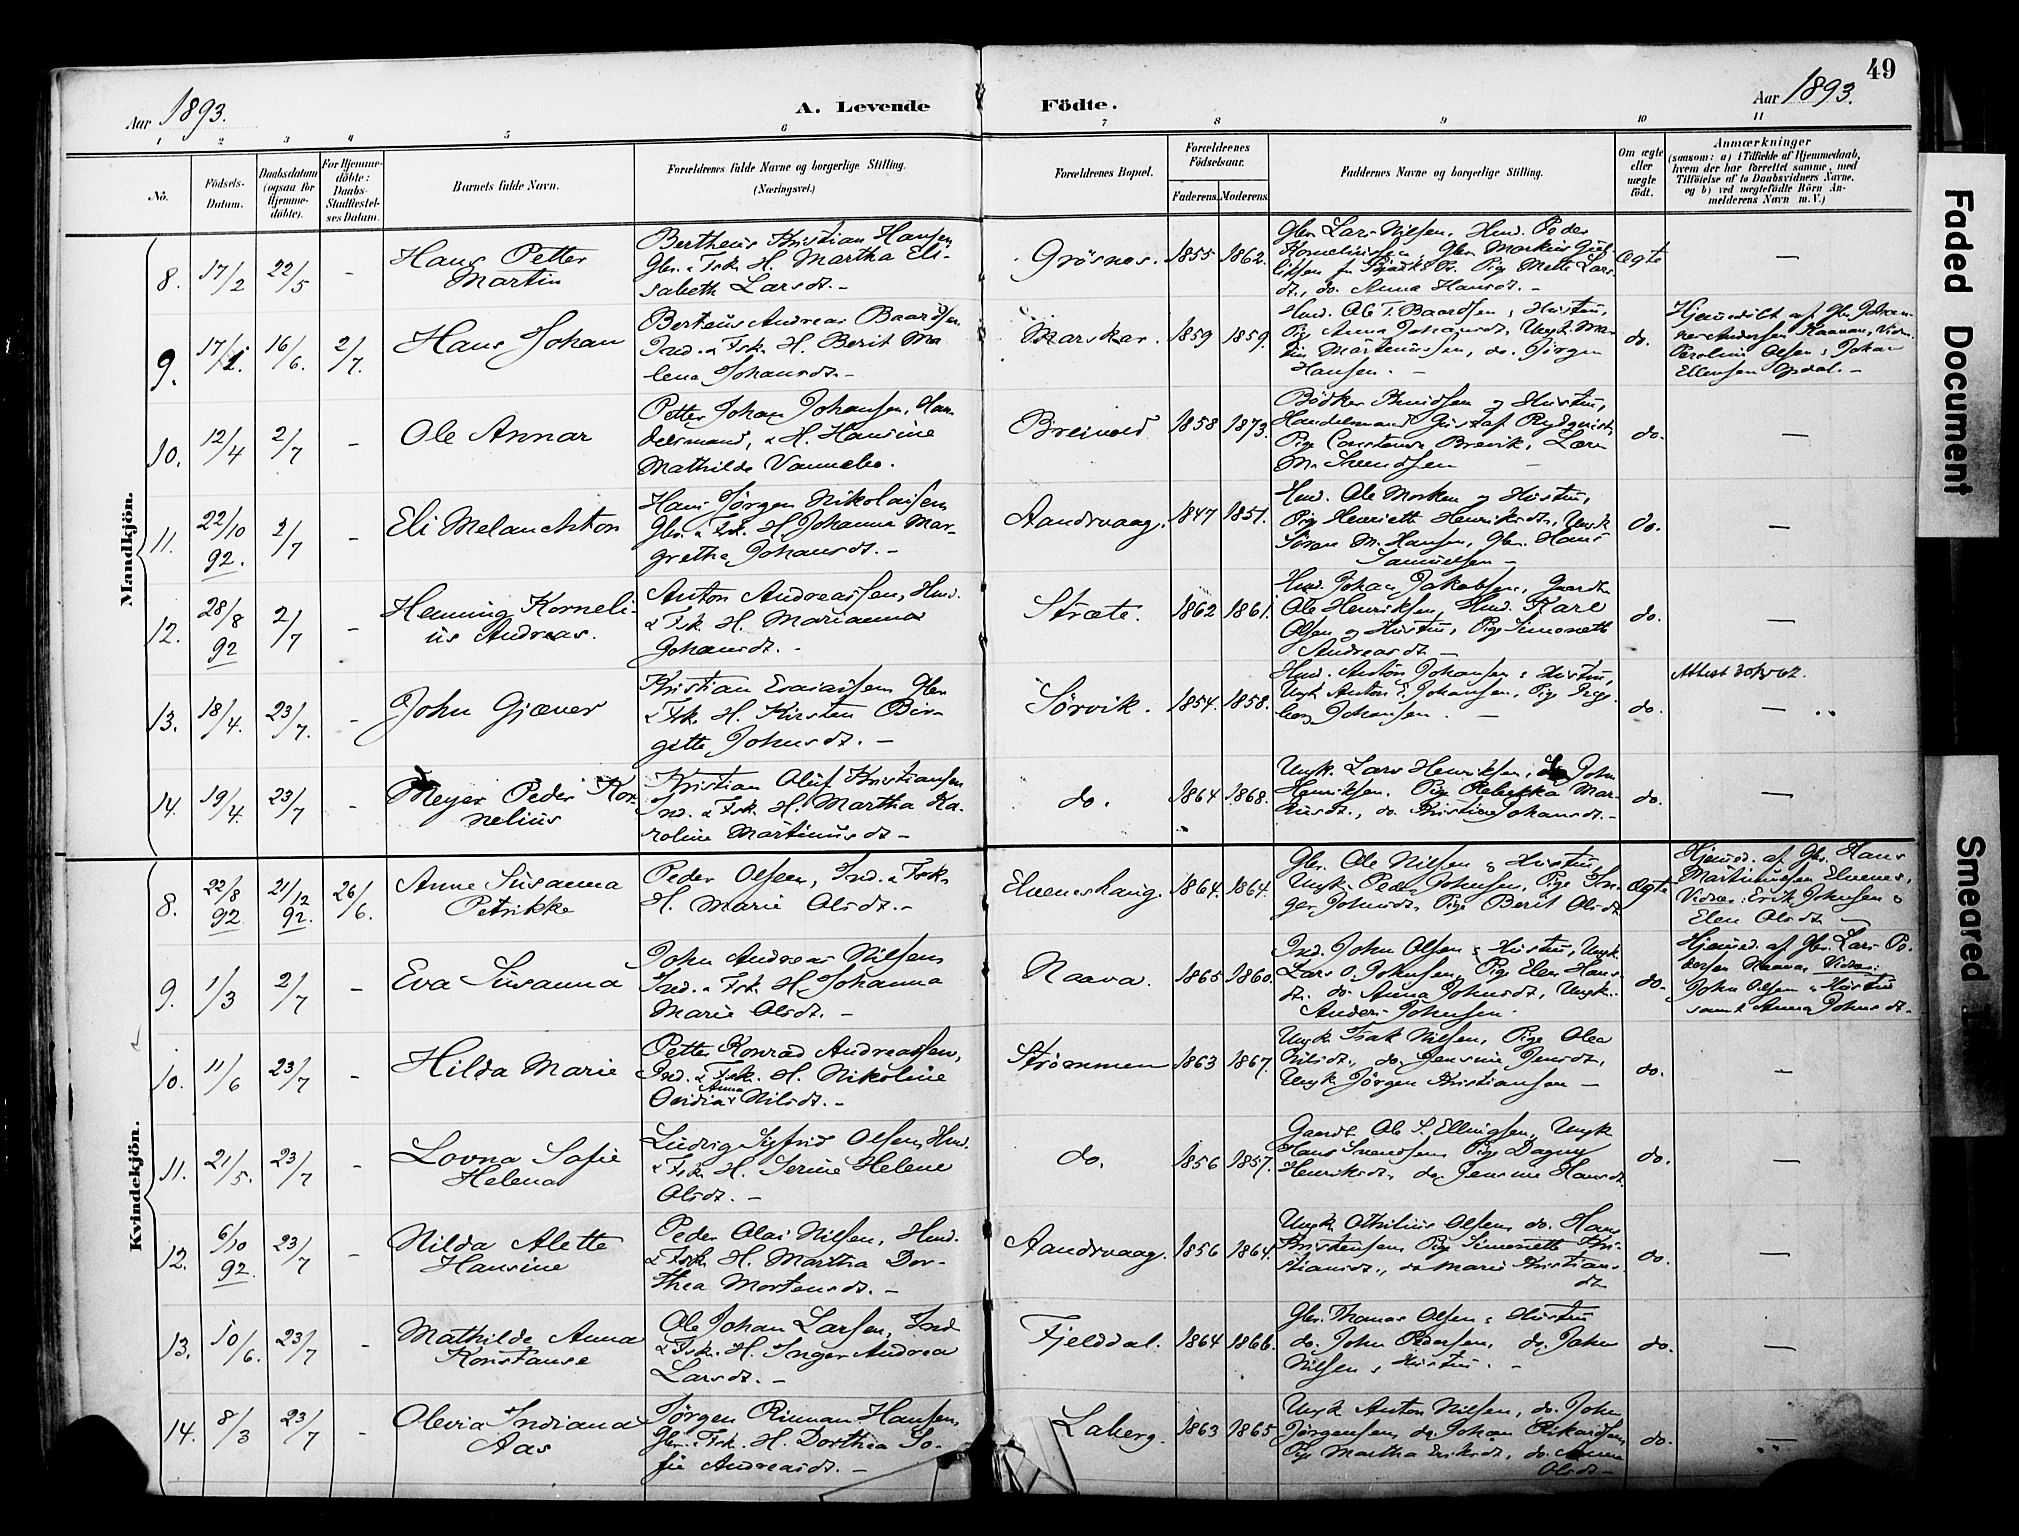 49
Aar 1893.
A. Levende Födte.
Aar 1893.
1 2 3 4 5 6 7 8 9 10 11
No.
Födsels-Datum.
Daabsdatum (ogsaa for Hjemme-döbte).
For Hjemme-döbte: Daabs-Stadfæstel-ses Datum.
Barnets fulde Navn.
Forældrenes fulde Navne og borgerlige Stilling. (Næringsvei.)
Forældrenes Bopæl.
Forældrenes Födselsaar.
Faderens. Moderens.
Faddernes Navne og borgerlige Stilling.
Om ægte eller uægte födt.
Anmærkninger
(saasom: a) i Tilfælde af Hjemmedaab, hvem der har forrettet samme, med Tilföielse af to Daabsvidners Navne, og b) ved uægtefödte Börn Anmelderens Navn m. V.)
Mandkjön.
8. 17/2 22/5 -
Hans Petter
Martin
Bertheus Kristian Hansen
Gbr. & Fsk. H. Martha Eli-
sabeth Larsdt. -
Grøsnes. 1855 1862.
Gbr. Lars Nilsen, Hmd. Peder
Ægte -
9. 17/1. 16/6. 2/7.
Hans Johan
Berteus Andreas Baardsen
Ind. & Fsk. H. Berit Ma
lena Johansdt. -
1859 1859.
Hmd. Ole T. Baardsen & Hustru,
Pige Anna Johansdt., Ungk. Mar-
tin Martinussen, do. Jørgen
Hansen. -
do.
10. 12/4 2/7 -
Ole Annar
Petter Johan Johansen, Han
delsmand, & H. Hansine
Mathilde Vannebo.
Breivold. 1858 1873.
Bødker Knudsen og Hustru,
Handelsmand Gustaf Rydqvist
Pige Constanse Brevik, Lærer
M. Svendsen -
do. -
11. 22/10 92. 2/7 -
Eli Melanchton
Hans Jørgen Nikolaisen
Gbr. & Fsk. H. Johanna Mar-
gretha Johansdt. -
Aandervaag. 1847 1851.
Hmd. Ole Morken og Hustru,
Pige Henriette Henriksdt., Ungk
Søren M. Hansen, Gbr. Hans
Samuelsen -
do. -
12. 28/8 92 2/7 -
Henning Korneli-
us Andreas.
Anton Andreassen, Hmd.
& Fsk. H. Marianna
Johansdt. -
Stræte. 1862 1861.
Hmd. Johan Jakobsen, Gaardb.
Ole Henriksen, Hmd. Karl
Olsen og Hustru, Pige Simonette
Andreasdt. -
do. -
13. 18/4. 23/7. -
John Gjæver
Kristian Esaiassen Gbr
& Fsk. H. Kirsten Bir-
gitte Johnsdt. -
Sørvik. 1854. 1858.
Hmd. Anton Johansen & Hustru,
Ungk. Anton E. Johansen, Pige Inge
borg Johansen. -
do. -
14. 19/4. 23/7 -
Meyer Peder Kor-
nelius
Kristian Oluf Kristiansen
Ind. & Fsk. H. Martha Ka
roline Martinusdt -
do. 1864 1868.
Ungk. Lars Henriksen, do John
Henriksen, Pige Rebekka Mar-
kusdt., do. Kristine Johansdt. -
do. -
Kvindekjön.
8. 22/8 92 21/12 92. 26/6.
Anne Susanna
Petrikke
Peder Olsen, Ind. & Fsk.
H. Marie Olsdt. -
Elveneshaug. 1864. 1864.
Gbr. Ole Nilsen & Hustru,
Ungk. Peder Johnsen, Pige In-
ger Johnsdt, Pige Berit Olsdt
Ægte
Hjemmed. af Gbr. Hans
Martinussen Elvenes,
Vidner: Erik Johnsen &
Elen Olsdt -
9. 1/3 2/7 -
Eva Susanna
John Andreas Nilsen
Ind. & Fsk. H. Johanna
Marie Olsdt. -
Naava. 1865 1860.
Ind. John Olsen & Hustru, Ungk.
Lars O. Johnsen, Pige Elen Hans-
dt. do. Anna Johnsdt, Ungk.
Anders Johnsen.
do.
Hjemmed. af Gbr. Lars Pe-
dersen Naava. Vidner:
John Olsen & Hustru
samt Anna Johnsdt. -
10. 11/6 23/7 -
Hilda Marie
Petter Konrad Andreassen,
Ind. & Fsk. H. Nikoline
Ovidia Anna Nilsdt. -
Strømmen 1863 1867.
Ungk. Isak Nilsen, Pige Olea
Nilsdt., do. Jensine Jensdt,
Ungk. Jørgen Kristiansen -
do. -
11. 21/5. 23/7 -
Lovna Sofie
Helena
Ludvig Sigfrid Olsen, Hmd.
& Fsk. H. Serine Helene
Olsdt. -
do. 1856 1857.
Gaardb. Ole S. Ellingsen, Ungk
Hans Svendsen, Pige Dagny
Henriksdt, do. Jensine Hansdt.
do. -
12. 6/10 92. 23/7 -
Nilda Alette
Hansine
Peder Olai Nilsen, Hmd.
& Fsk. H. Martha Dor-
thea Mortensdt. -
Aandervaag. 1856 1864.
Ungk. Othilius Olsen, do. Hans
Kristensen, Pige Simonette Kri-
stiansdt., do Marie Kristians-
dt
do. -
13. 10/6. 23/7 -
Mathilde Anna
Konstanse
Ole Johan Larsen, Ind
& Fsk. H. Inger Andrea
Larsdt. -
Fjelddal. 1864 1866.
Gbr. Thomas Olsen & Hustru
do. John Pedersen, do. John
Nilsen & Hustru. -
do. -
14. 8/3 23/7 -
Olevia Indiana
Aas
Jørgen Rinnan Hansen,
Gbr. & Fsk. H. Dorthea So-
fie Andreasdt. -
Laberg. 1863 1865
Ungk. Anton Nilsen, do. John
Jørgensen, do Johan Rikardsen
Pige Martha Eriksdt., do. Anna
Olsdt -
do. -
Faded Document
Smeared